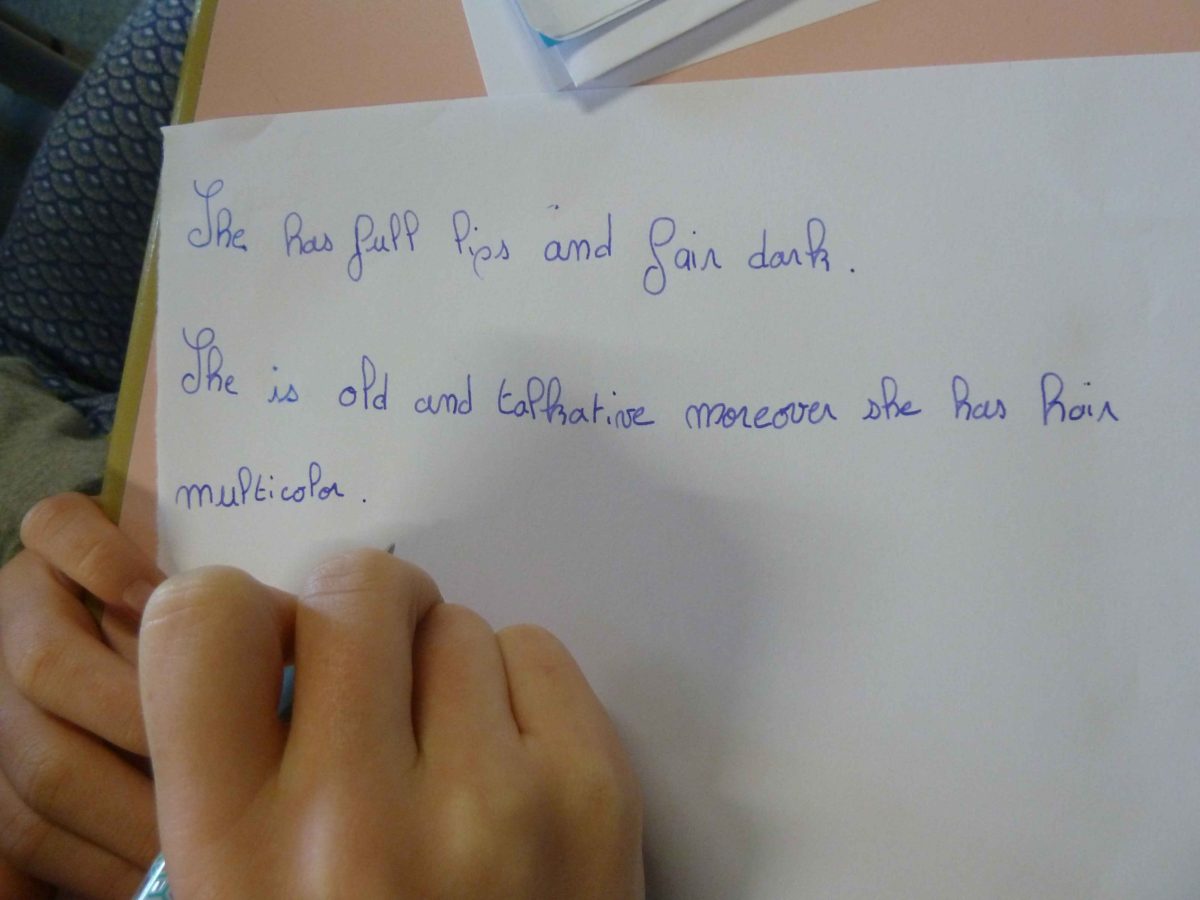 She has full lips and fair dark.
She is old and talkative moreover she has hair
multicolor.